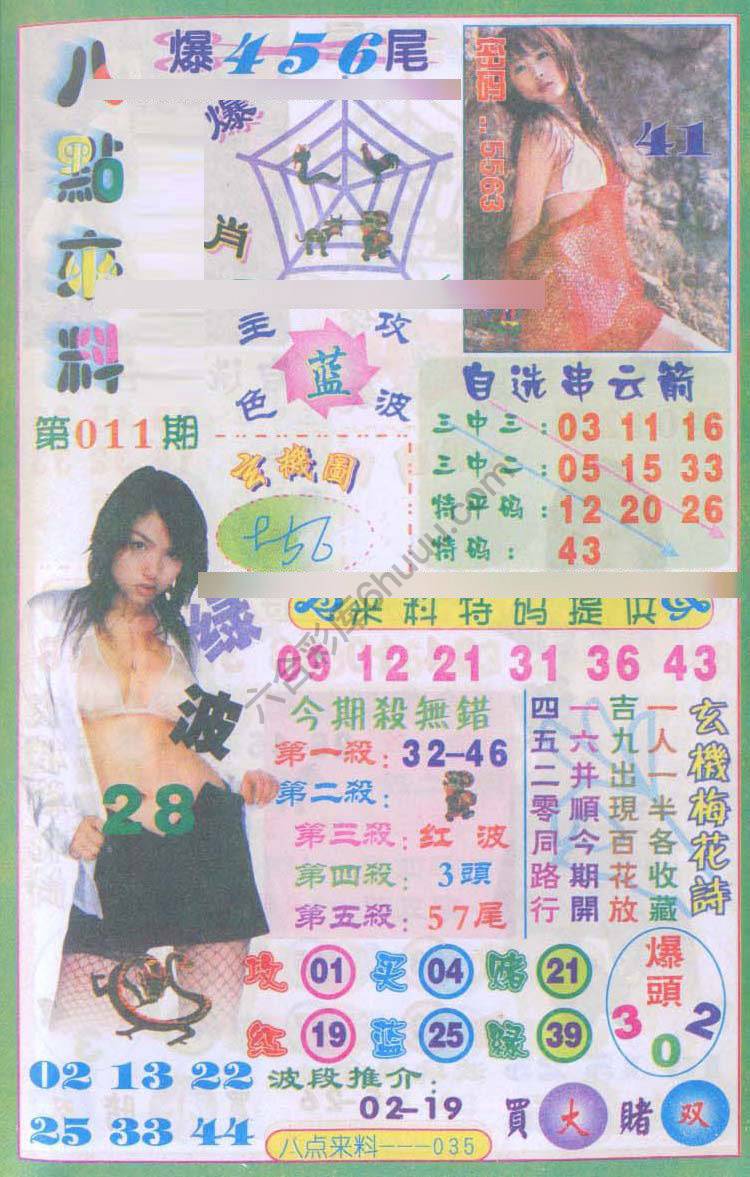 八點來料
爆456尾
爆肖
密码:5563
41
主攻
蓝
色波
第011期
自选串云箭
三中三:03 11 16
三中二:05 15 33
特平码:12 20 26
特码:43
玄機圖
來料特码提供
09 12 21 31 36 43
绿波
28
今期殺無錯
第一殺:32-46
第二殺:
第三殺:红波
第四殺:3頭
第五殺:57尾
玄機梅花詩
一人一半各收藏
吉九出現百花放
一六并順今期開
四五二零同路行
攻 01 买 04 赌 21
红 19 蓝 25 绿 39
爆頭
3 0 2
02 13 22
25 33 44
波段推介:
02-19
買大賭双
八点来料---035
六合彩库6huuu.com